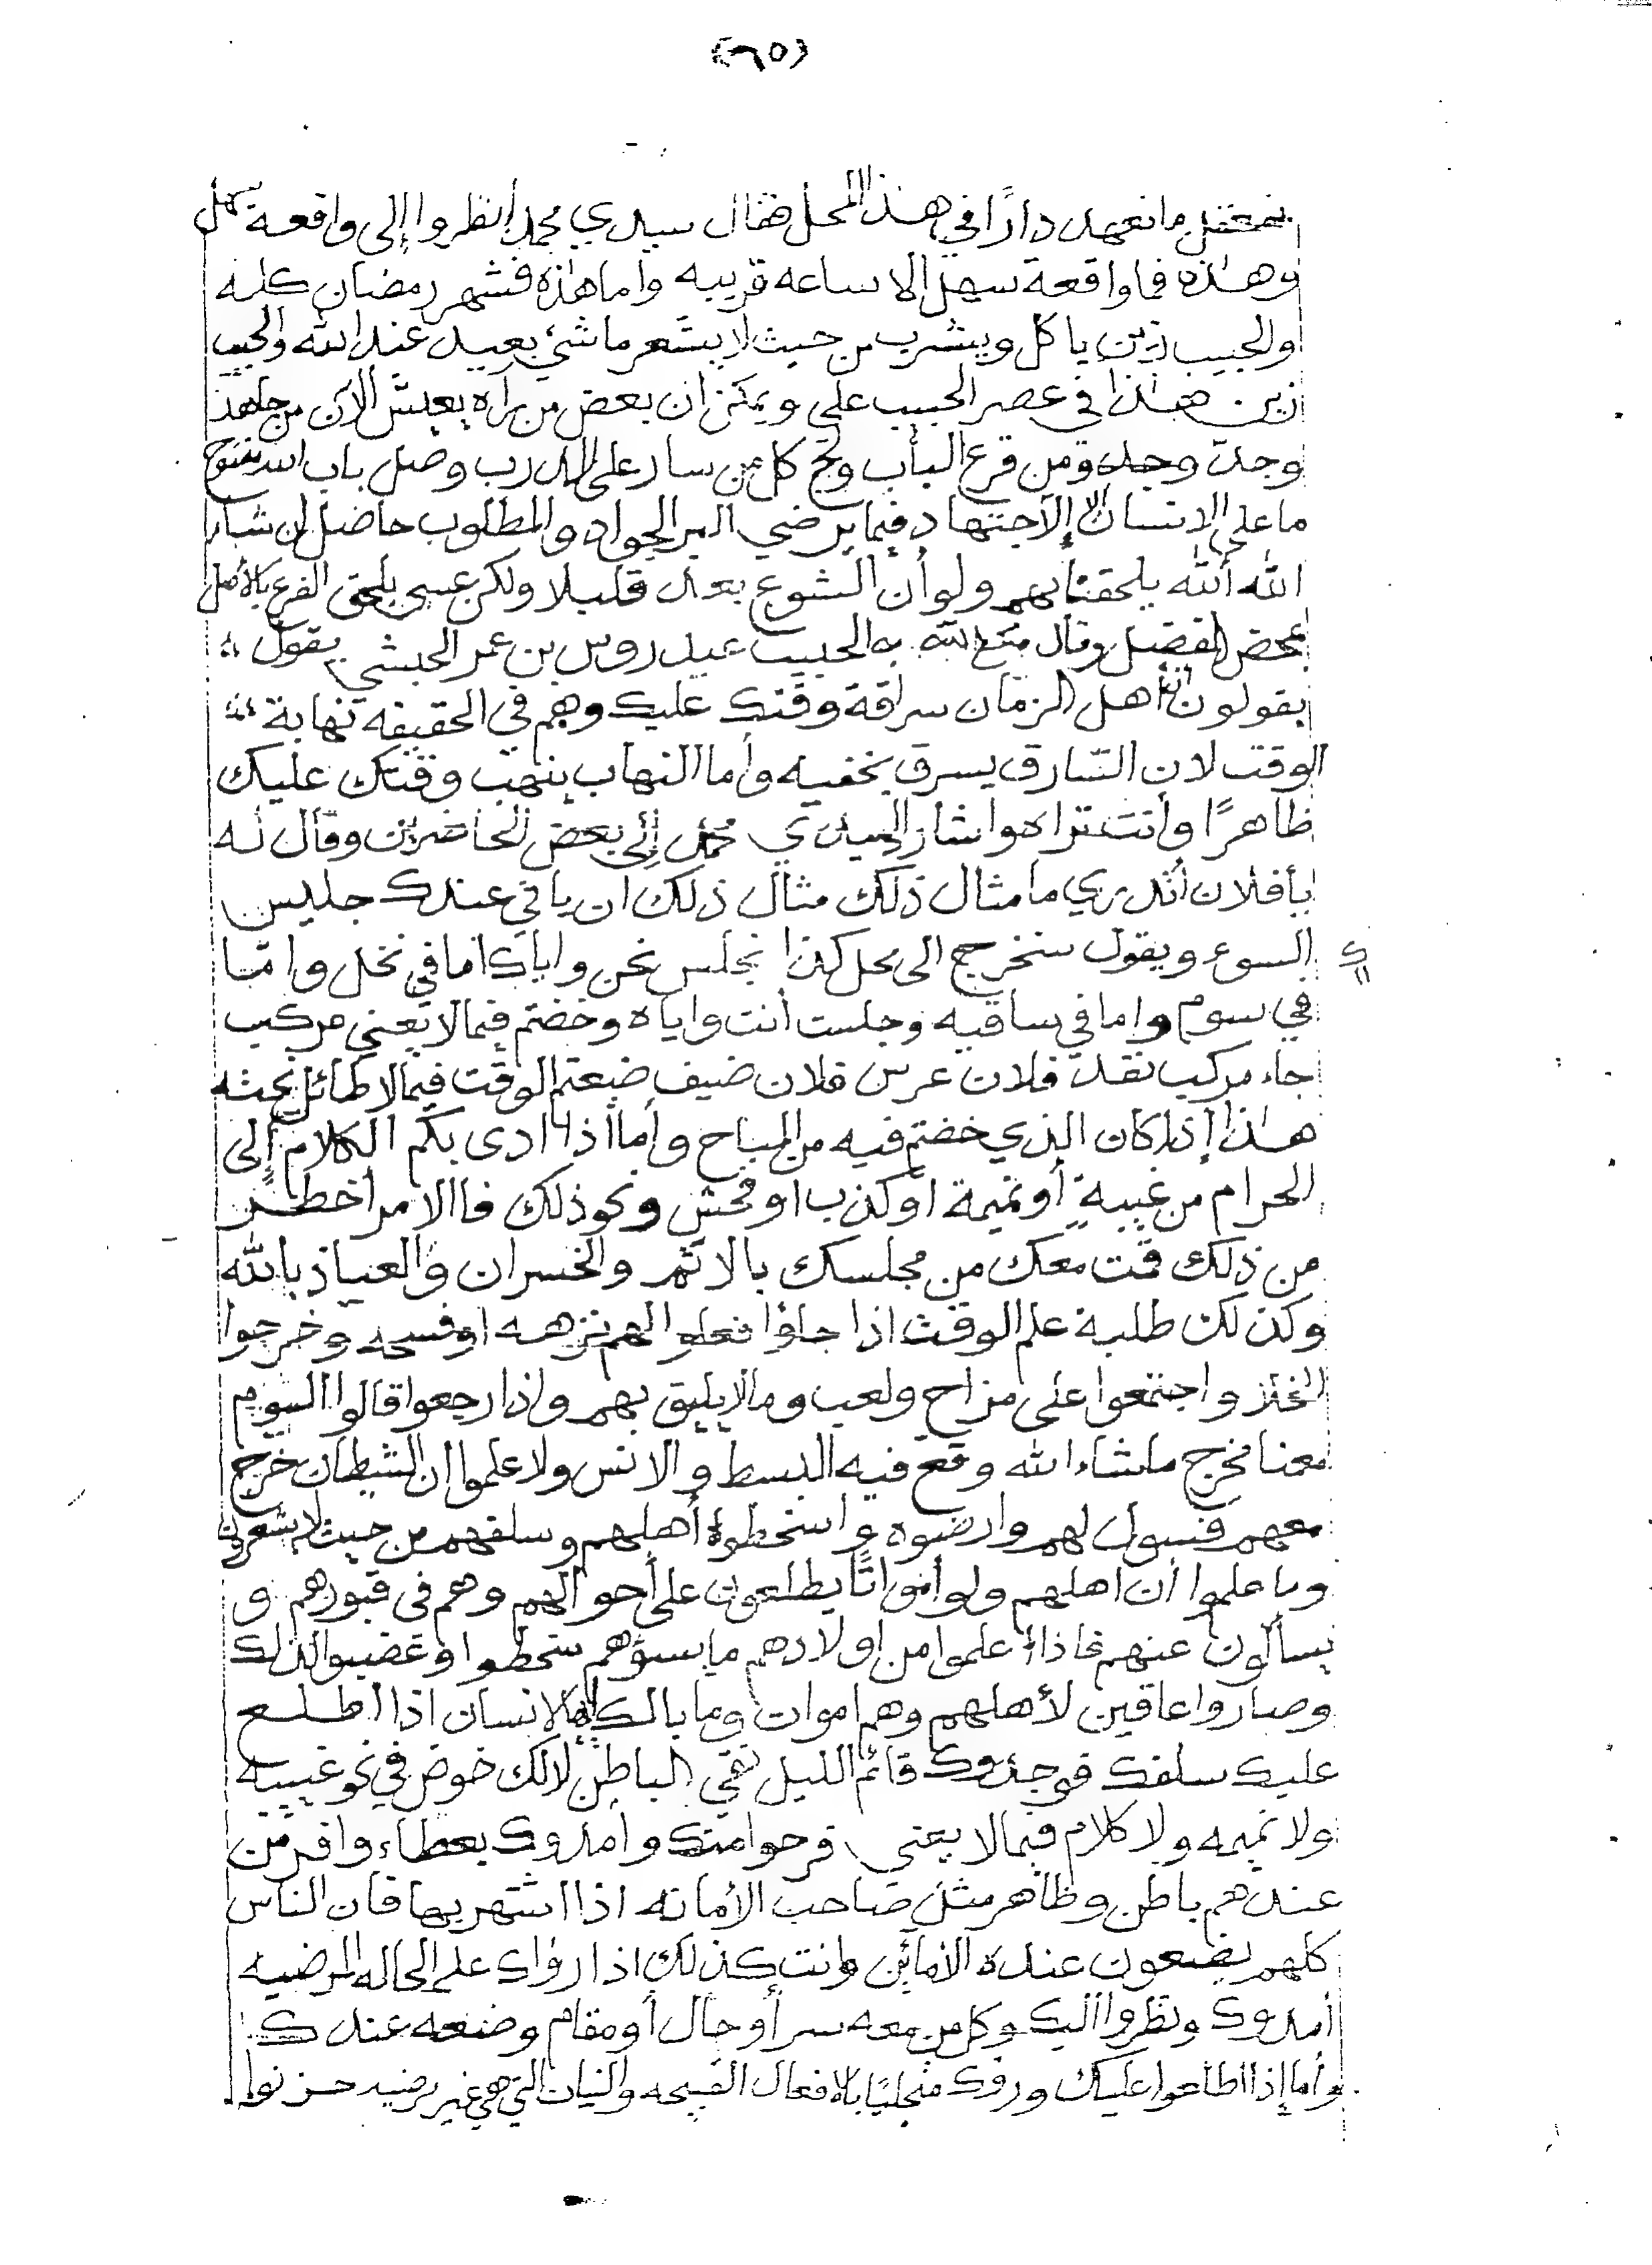 (٦٥)
ما نعهد دارًا في هذا المحل فقال سيدي محمد أنظروا إلى واقعة سهل
وهذه فما واقعة سهل إلا ساعه قريبه واما هذه فشهر رمضان كله
والحبيب زين ياكل ويشرب من حيث لا يشعر ما شيء بعيد عند الله والحبيب
زين هذا في عصر الحبيب علي ويمكن ان بعض من يراه يعيش الآن من جاهد
وجد وجد ومن قرع الباب ولج كل من سار على الدرب وصل باب الله مفتوح
ما على الانسان إلا الأجتهاد فيما يرضي البر الجواد والمطلوب حاصل إن شاء
الله ألله يلحقنا بهم ولو أن الشوع بعد قليلا ولكن عسى يلحق الفرع بالأصل
بمحض الفضل وقال متع الله به الحبيب عيدروس بن عمر الحبشي يقول
يقولون أن أهل الزمان سراقة وقتك عليك وهم في الحقيقه نهابة
الوقت لان السارق يسرق بخفيه وأما النهاب ينهب وقتك عليك
ظاهرًا وأنت تراه واشار سيدي محمد إلى بعض الحاضرين وقال له
يا فلان أتدري ما مثال ذلك مثال ذلك ان ياتي عندك جليس
السوء ويقول سنخرج الى محل كذا نجلس نحن واياك اما في نخل واما
في سوم واما في ساقيه وجلست أنت واياه وخضتم فيما لا يعني مركب
جاء مركب نقد فلان عرس فلان ضيف ضيعتم الوقت فيما لا طائل تحته
هذا إذا كان الذي خضتم فيه من المباح وأما أذا ادى بكم الكلام إلى
الحرام من غيبةٍ أو نميمة او كذب او فحش ونحو ذلك فالامر أخطر
من ذلك قمت معك من مجلسك بالاثم والخسران والعياذ بالله
وكذلك طلبة علم الوقت اذا جاؤا فعلوا لهم نزهه او فسحه وخرجوا
واجتمعوا على مزاح ولعب وما لا يليق بهم واذا رجعوا قالوا اليوم
معنا مخرج ماشاء الله وقع فيه البسط والانس ولا علموا ان الشيطان خرج
معهم فسول لهم وارضوه واسخطوا أهلهم وسلفهم من حيث لا يشعرون
وما علموا أن اهلهم ولو أمواتًا يطلعون على أحوالهم وهم في قبورهم و
يسألون عنهم فاذا علموا من اولادهم ما يسوؤهم سخطوا وغضبوا لذلك
وصاروا عاقين لأهلهم وهم اموات وما بالك ايها الانسان اذا اطلع
عليك سلفك فوجدوك قائم الليل نقي الباطن لا لك خوض في نحو غيبيه
ولا نميمه ولا كلام فيما لا يعني فرحوا منك وأمدوك بعطاء وافر من
عندهم باطن وظاهر مثل صاحب الأمانه اذا اشتهر بها فان الناس
كلهم يضعون عنده الأمائن وانت كذلك اذا رؤاك على الحاله المرضيه
أمدوك ونظروا اليك وكل من معه سر أو حال أو مقام وضعه عندك
وأما إذا اطلعوا عليك وروك متجليًا بالافعال القبيحه والنيات التي هي غير رضيه حزنوا